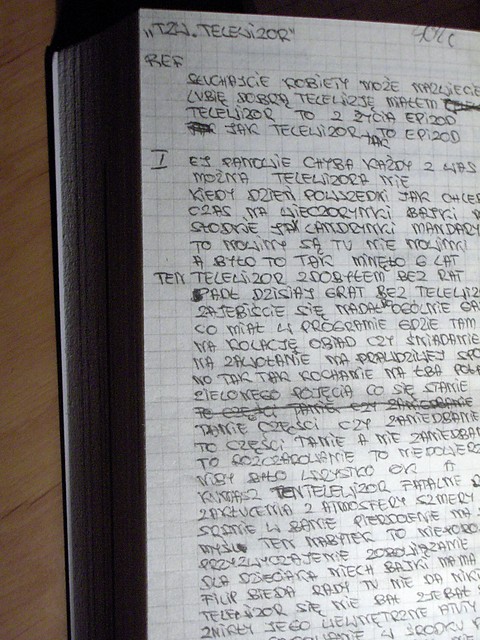 „TZW. TELEWIZOR"
REF
SŁUCHAJCIE KOBIETY MOŻE NAZWIECIE
LUBIĘ DOBRĄ TELEWIZJĘ MIAŁEM
TELEWIZOR TO Z ŻYCIA EPIZOD
JAK TELEWIZOR TAK TO EPIZOD
I EJ PANOWIE CHYBA KAŻDY Z WAS
MOŻNA TELEWIZORA NIE
KIEDY DZIEŃ POWSZEDNI JAK CHLEB
CZAS NA WIECZORYNKI BAJKI
SŁODKIE JAK LANDRYNKI MANDARY
TO NOWINY SĄ TV NIE NOWINKI
A BYŁO TO TAK MINĘŁO 6 LAT
TEN TELEWIZOR ZDOBYŁEM BEZ RAT
PADŁ DZISIAJ GRAT BEZ TELEWIZ
ZAJEBIŚCIE SIĘ NADAŁ OGÓLNIE
CO MIAŁ W PROGRAMIE GDZIE TAM
NA KOLACJĘ OBIAD CZY ŚNIADANIE
NA ZAWOŁANIE NA PRAWDZIWEJ
NO TAK TAK KOCHANIE NA ŁBA
ZIELONEGO POJĘCIA CO SIĘ STANIE
TO CZĘŚCI TANIE CZY ZANIEDBANIE
TANIE CZĘŚCI CZY ZANIEDBANIE
TO CZĘŚCI TANIE A NIE ZANIEDBA
TO ROZCZAROWANIE TO NIEDOWIERZ
NIBY BYŁO WSZYSTKO OK A
KUMASZ TEN TELEWIZOR FATALNE
ZAKŁÓCENIA Z ATMOSFERY SZMERY
SROGIE W BANIE PIERDOLENIE MA
MYŚL TEN NABYTEK TO
PRZYZWYCZAJENIE ZOBOWIĄZANIE
DLA DZIECIAKA NIECH BAJKI MA MA
FILIP BIEDA RADY TU NIE DA NIKT
TELEWIZOR SIĘ NIE BAŁ ZJEBAŁ
ZNIKŁY JEGO WEWNĘTRZNE ATUTY
W ŚRODKU